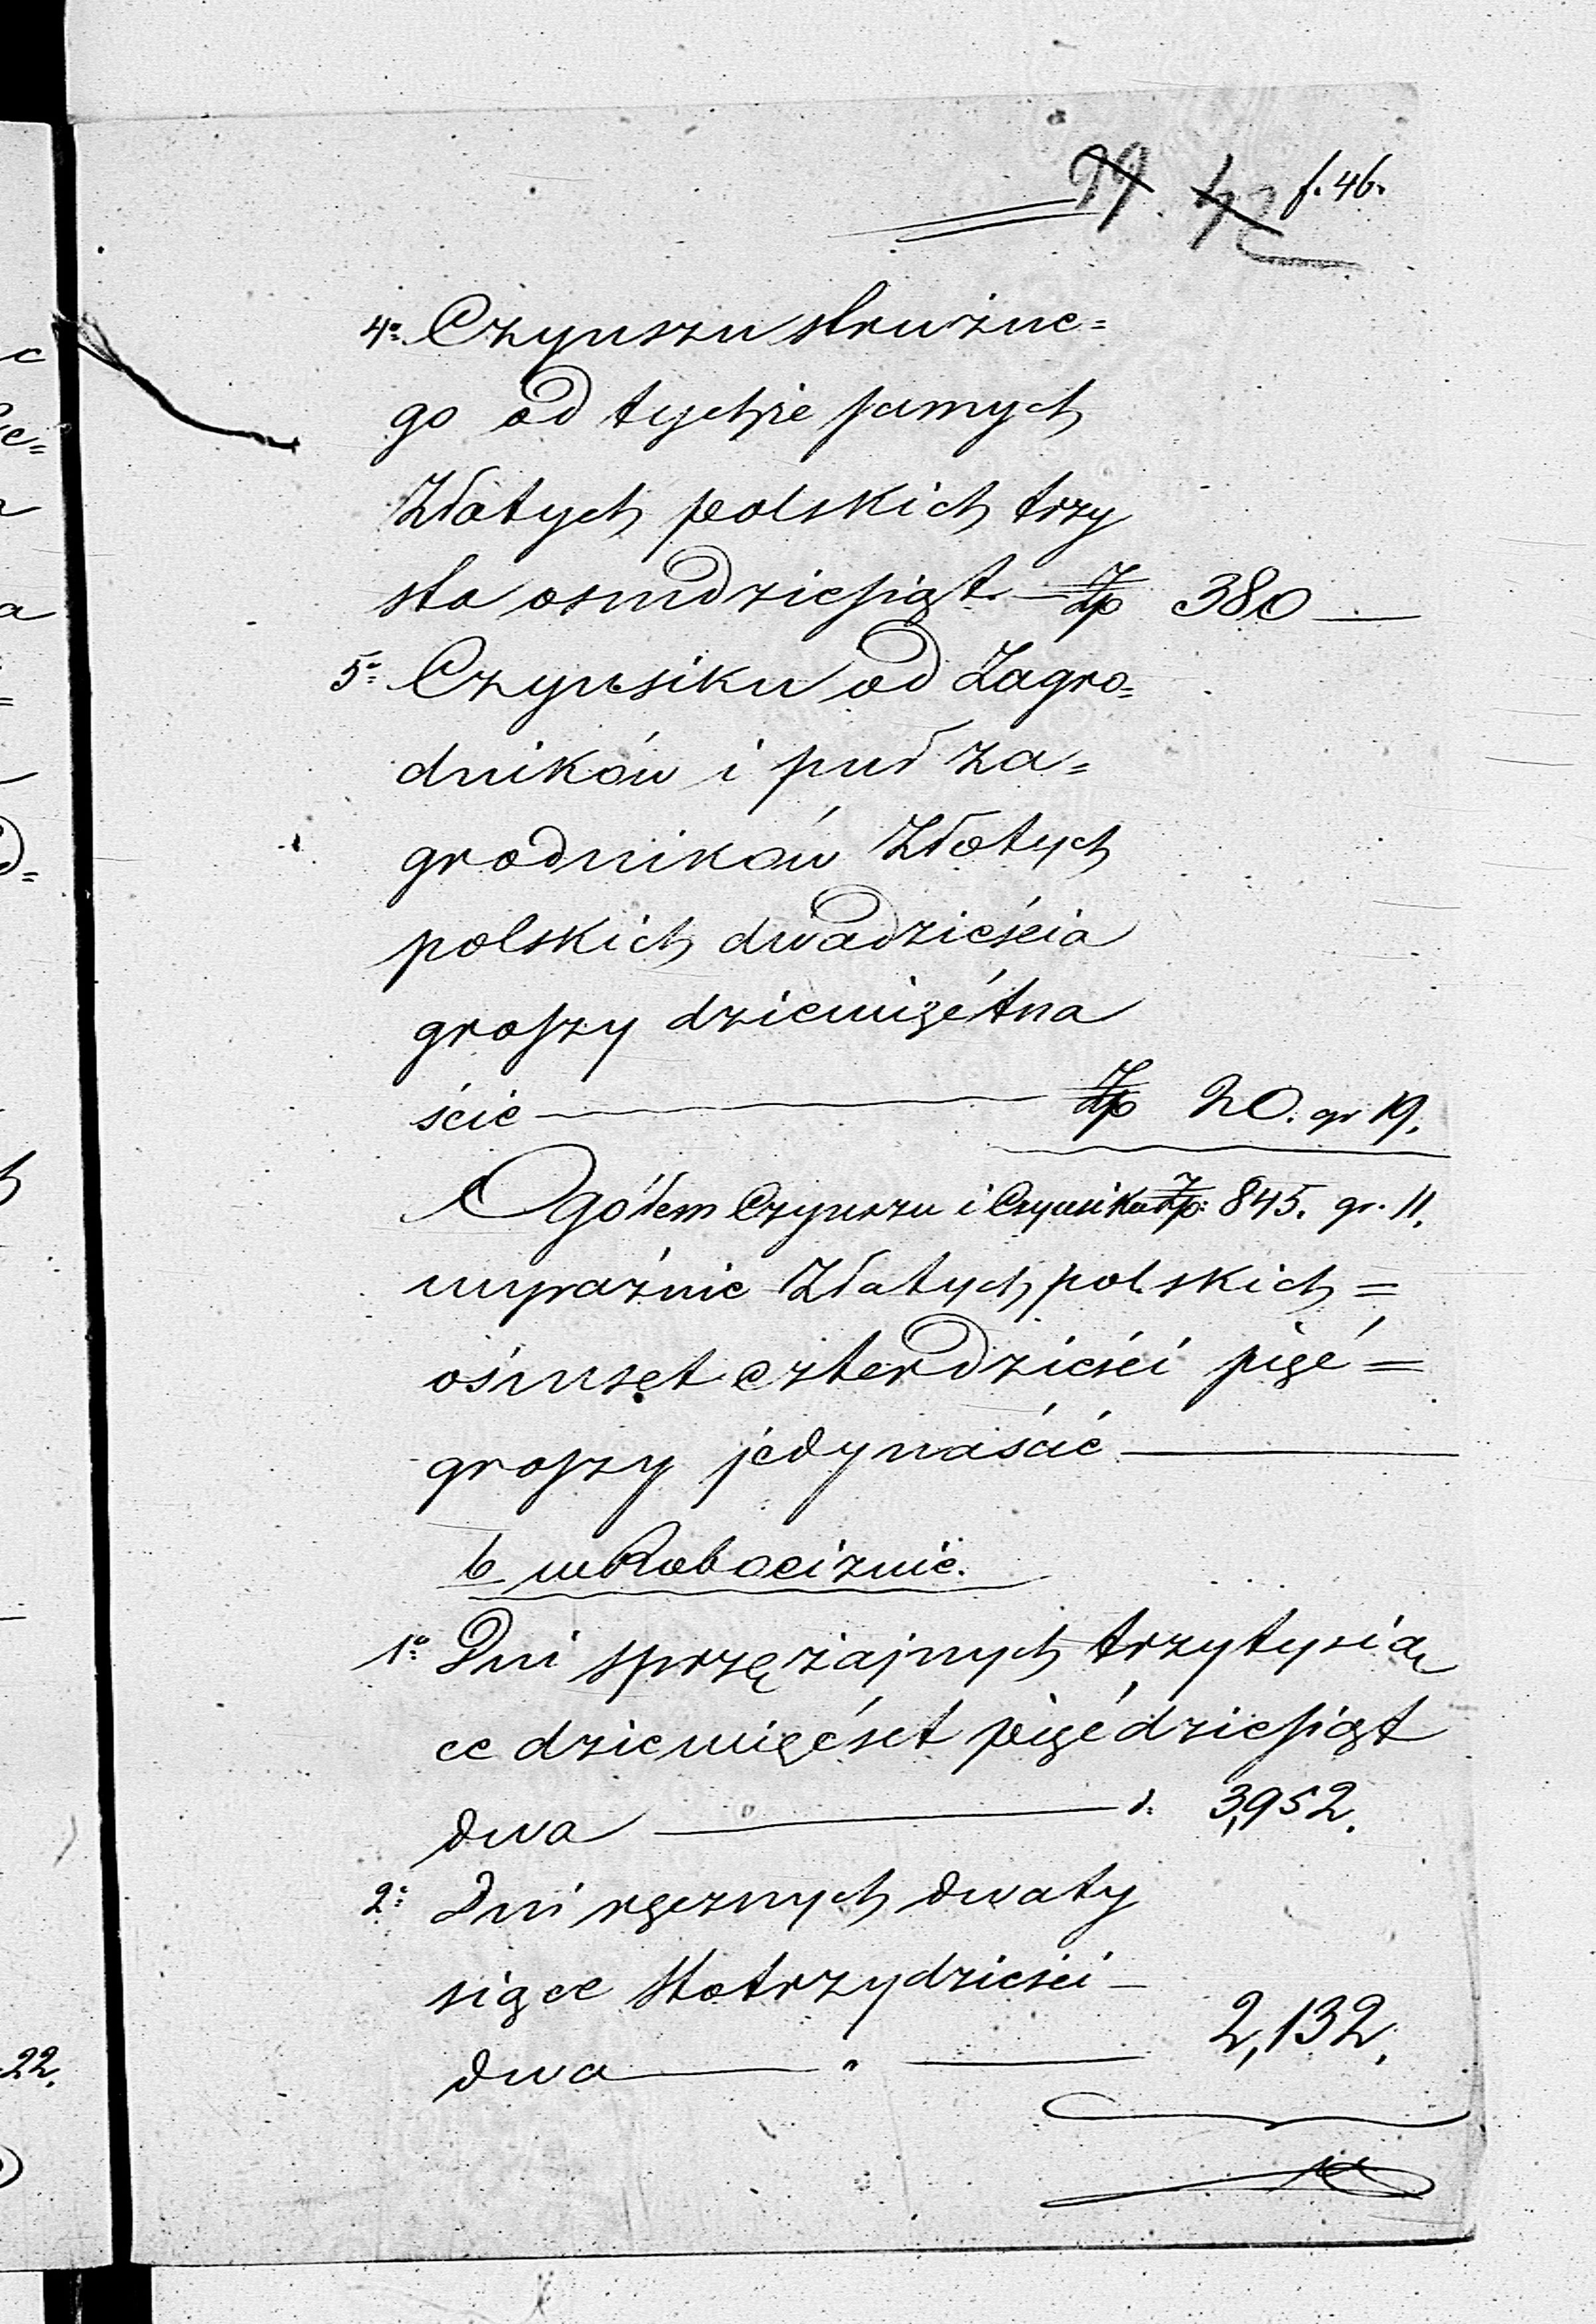 99. 42 f. 46.
4o Czynszu stróżne=
go od tychże samych
Złotych polskich trzy
sta osmdziesiąt — Złp 380 —
5o Czynsiku od Zagro=
dników i puł za=
grodników Złotych
polskich dwadzieścia
groszy dziewiętna
ście — Złp 20. gr 19.
Ogółem Czynszu i Czynsiku Złp: 845. gr. 11.
wyraźnie Złotych polskich =
ośmset czterdzieści pięć =
groszy jedynaście —
b w Robociznie.
1o Dni sprzężajnych trzy tysią
ce dziewięćset pięćdziesiąt
dwa — d: 3,952.
2o Dni ręcznych dwaty
siące sto trzydzieści —
dwa — " — 2,132.
22.